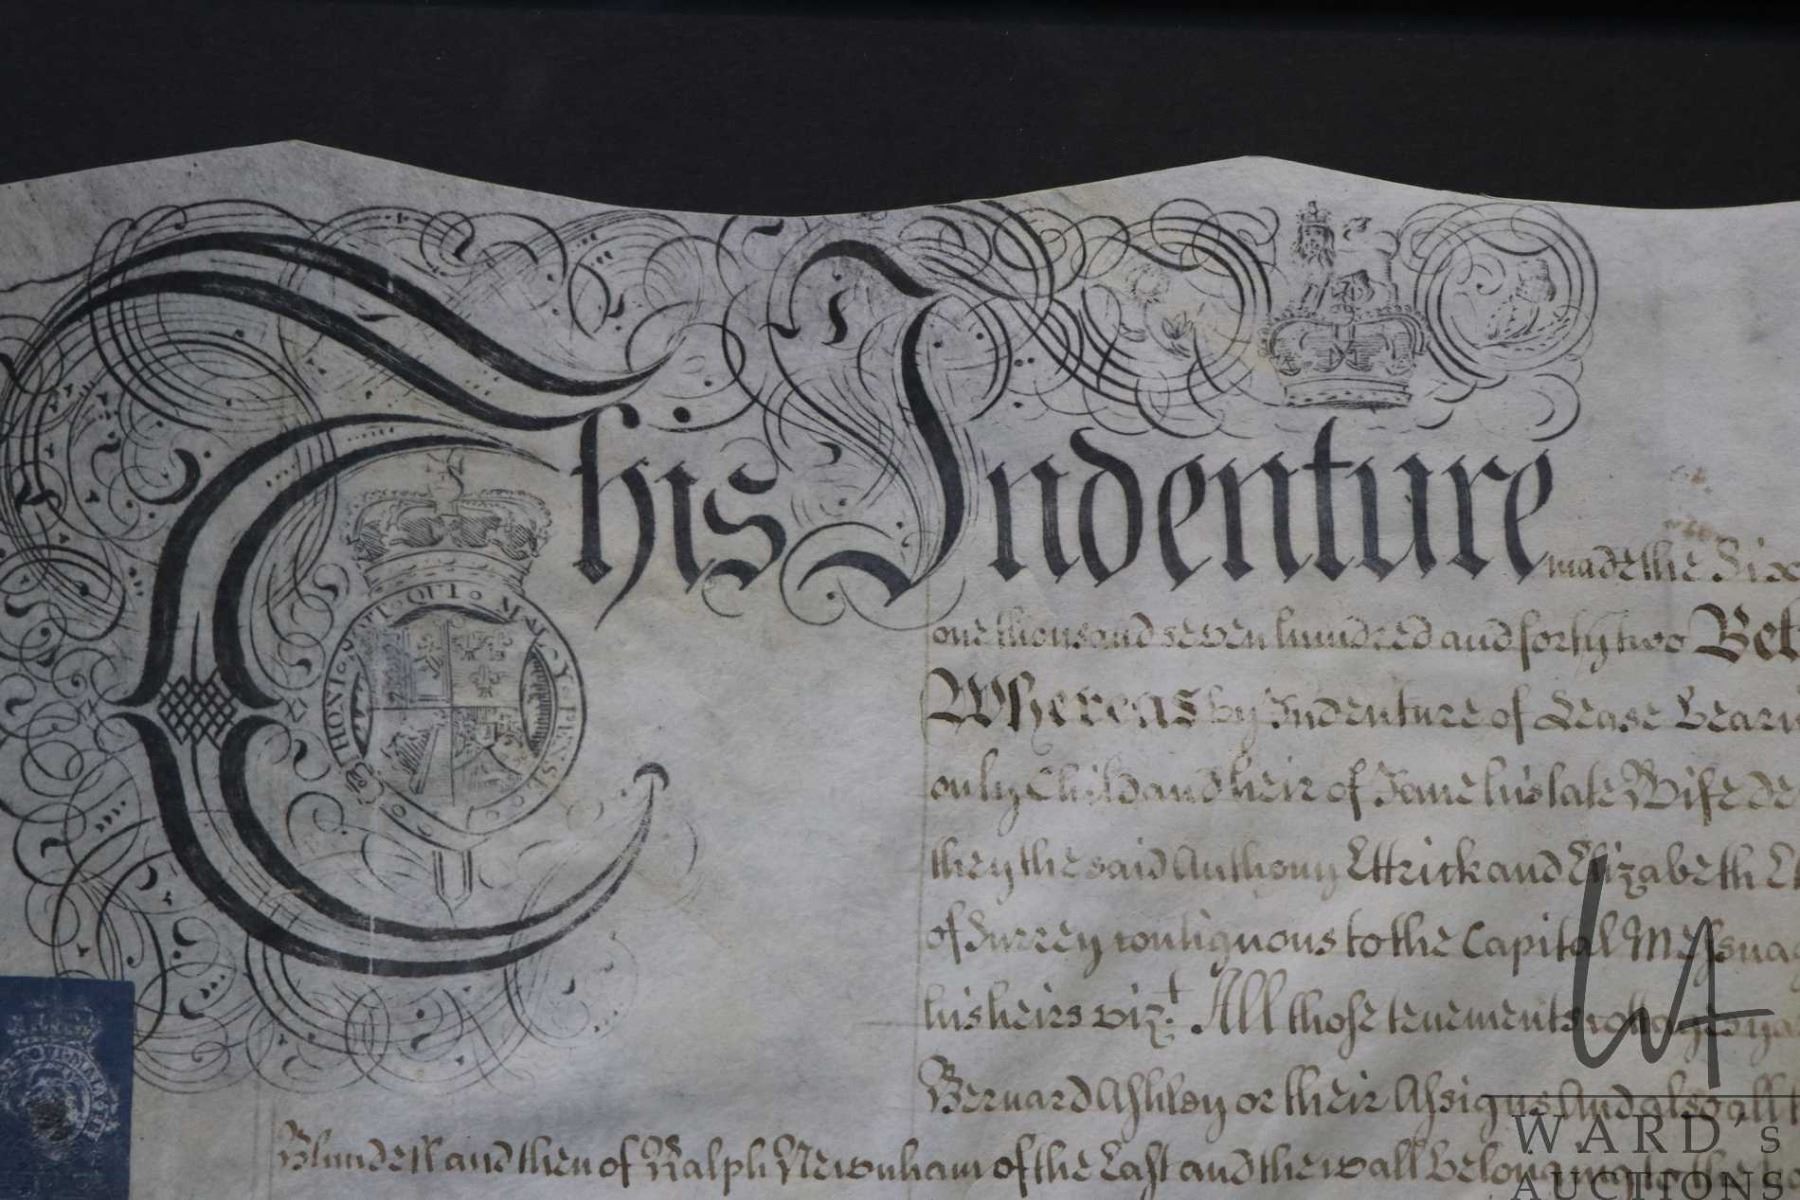 This Indenture made the Six
one thousand seven hundred and forty two Bet
Whereas by Indenture of Lease beari
only Child and heir of Jane his late Wife de
they the said Anthony Ettrick and Elizabeth Et
of Surrey contiguous to the Capital Messuag
his heirs vizt. All those tenements cottages ya
Bernard Ashley or their Assigns And also all t
Blundell and then of Ralph Newnham of the East and the wall belonging to the
HONI · SOIT · QUI · MAL · Y · PENSE
WARD's
AUCTIONS